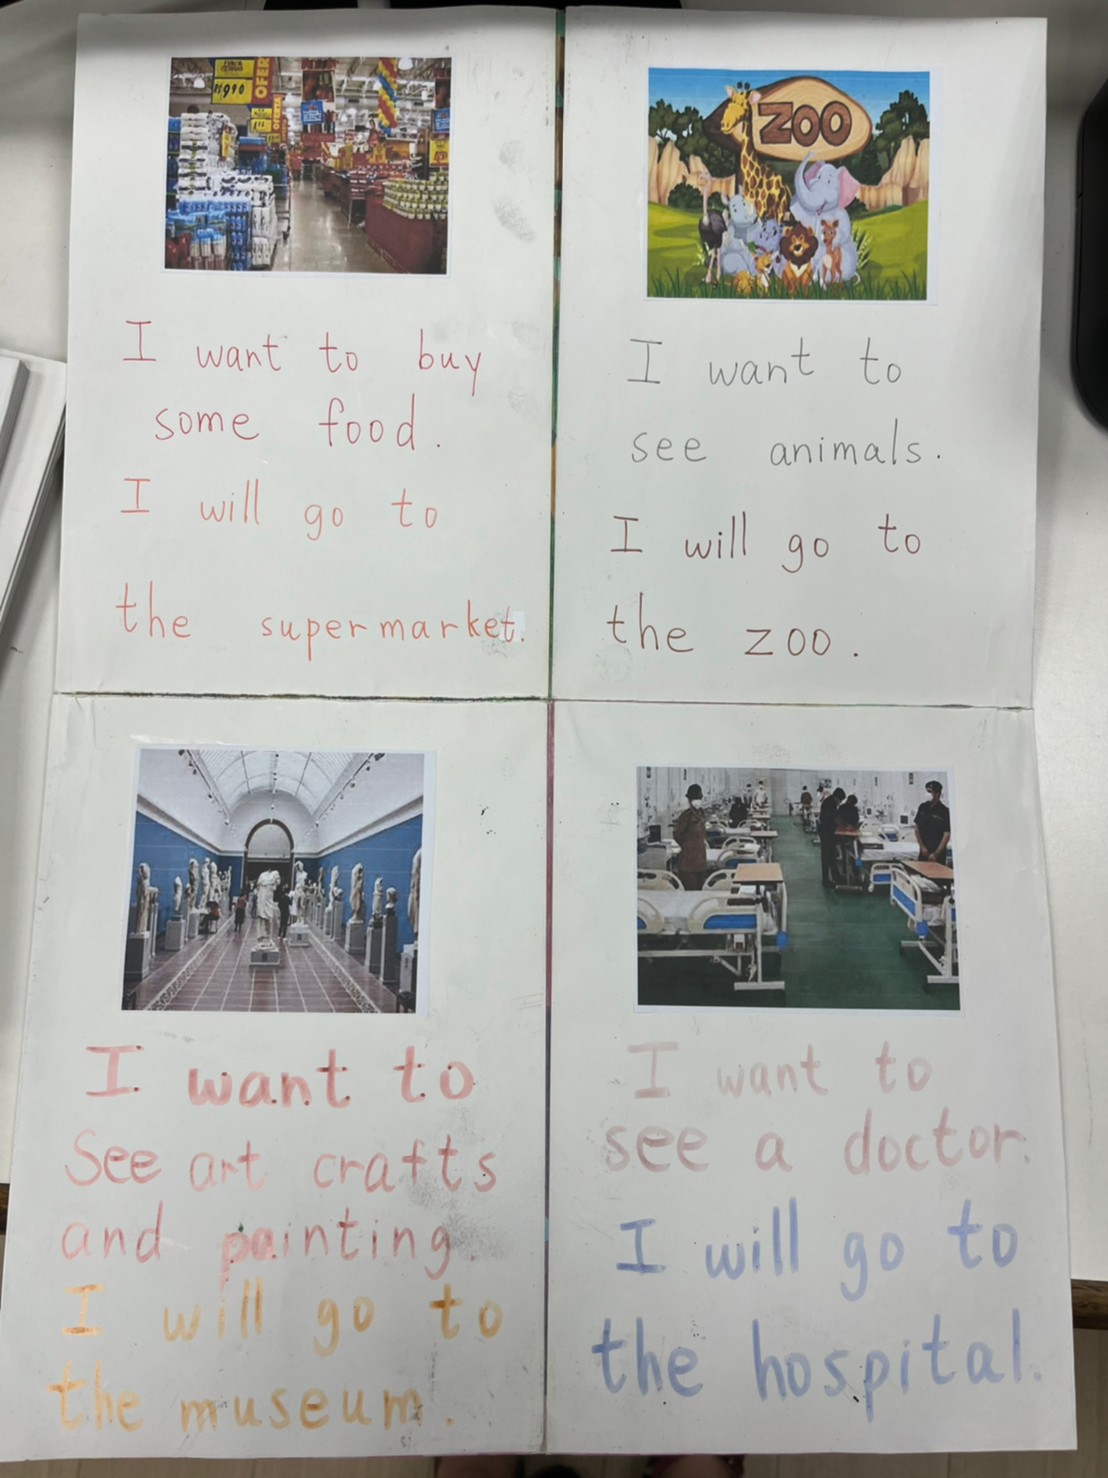 OFERTA
9,90
ZOO
I want to buy
some food.
I will go to
the supermarket.
I want to
see animals.
I will go to
the zoo.
I want to
See art crafts
and painting.
I will go to
the museum.
I want to
see a doctor.
I will go to
the hospital.